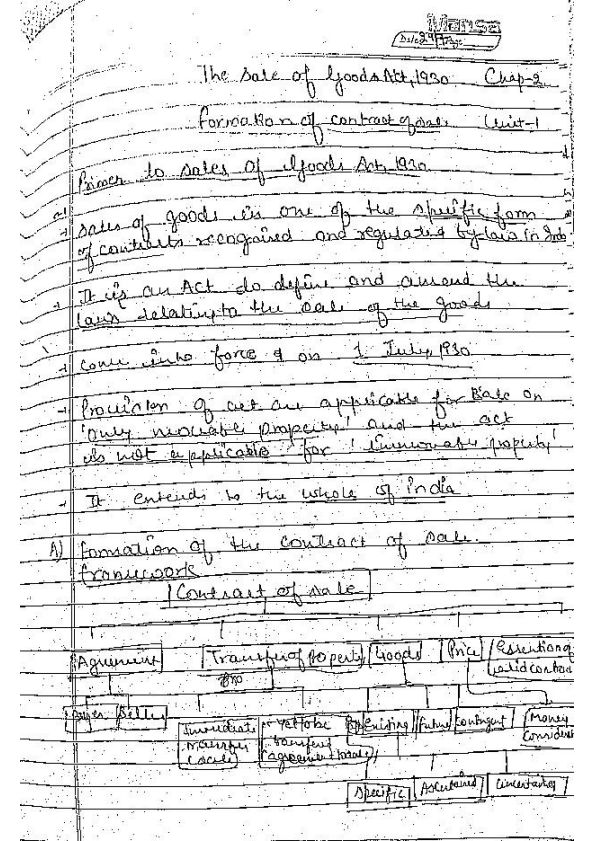 Mansa
Date 29
The Sale of Goods Act, 1930 Chap-2
formation of contract of sale Unit-1
Primer to Sales of Goods Act, 1930
→ Sales of goods is one of the specific form
of contracts recognised and regulated by law in
→ It is an Act do define and amend the
laws relating to the sale of the goods
→ come into force on 1 July, 1930
→ Provision of act are applicable for Sale on
'only movable property' and the act
is not applicable for 'immovable property'
→ It extends to the whole of India
A) formation of the contract of sale.
framework
Contract of sale
Agreement Transfer of Property Goods Price Essential of
valid contract
Buyer Seller Immediate transfer (sale) or yet to be transfer (agreement to sale) Existing future contingent Money Consideration
Specific Ascertained Uncertained